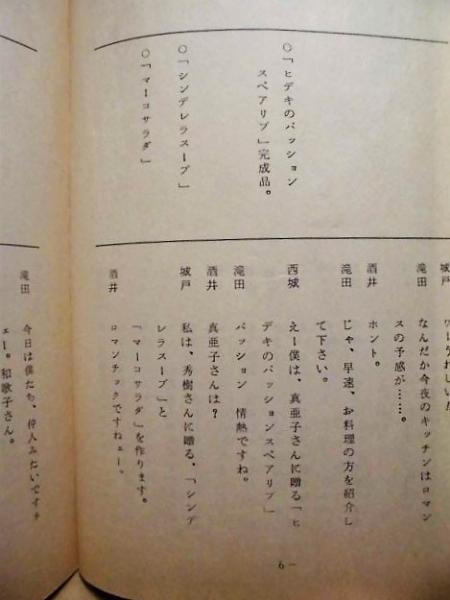 ○「ヒデキのパッション
スペアリブ」完成品。
○「シンデレラスープ」
○「マーコサラダ」
城戸
滝田 なんだか今夜のキッチンはロマン
スの予感が……。
酒井 ホント。
滝田 じゃ、早速、お料理の方を紹介し
て下さい。
西城 えー僕は、真亜子さんに贈る「ヒ
デキのパッションスペアリブ」
滝田 パッション 情熱ですね。
酒井 真亜子さんは?
城戸 私は、秀樹さんに贈る、「シンデ
レラスープ」と
「マーコサラダ」を作ります。
酒井 ロマンチックですねェー。
滝田 今日は僕たち、仲人みたいですネ
ェー。和歌子さん。
6 —